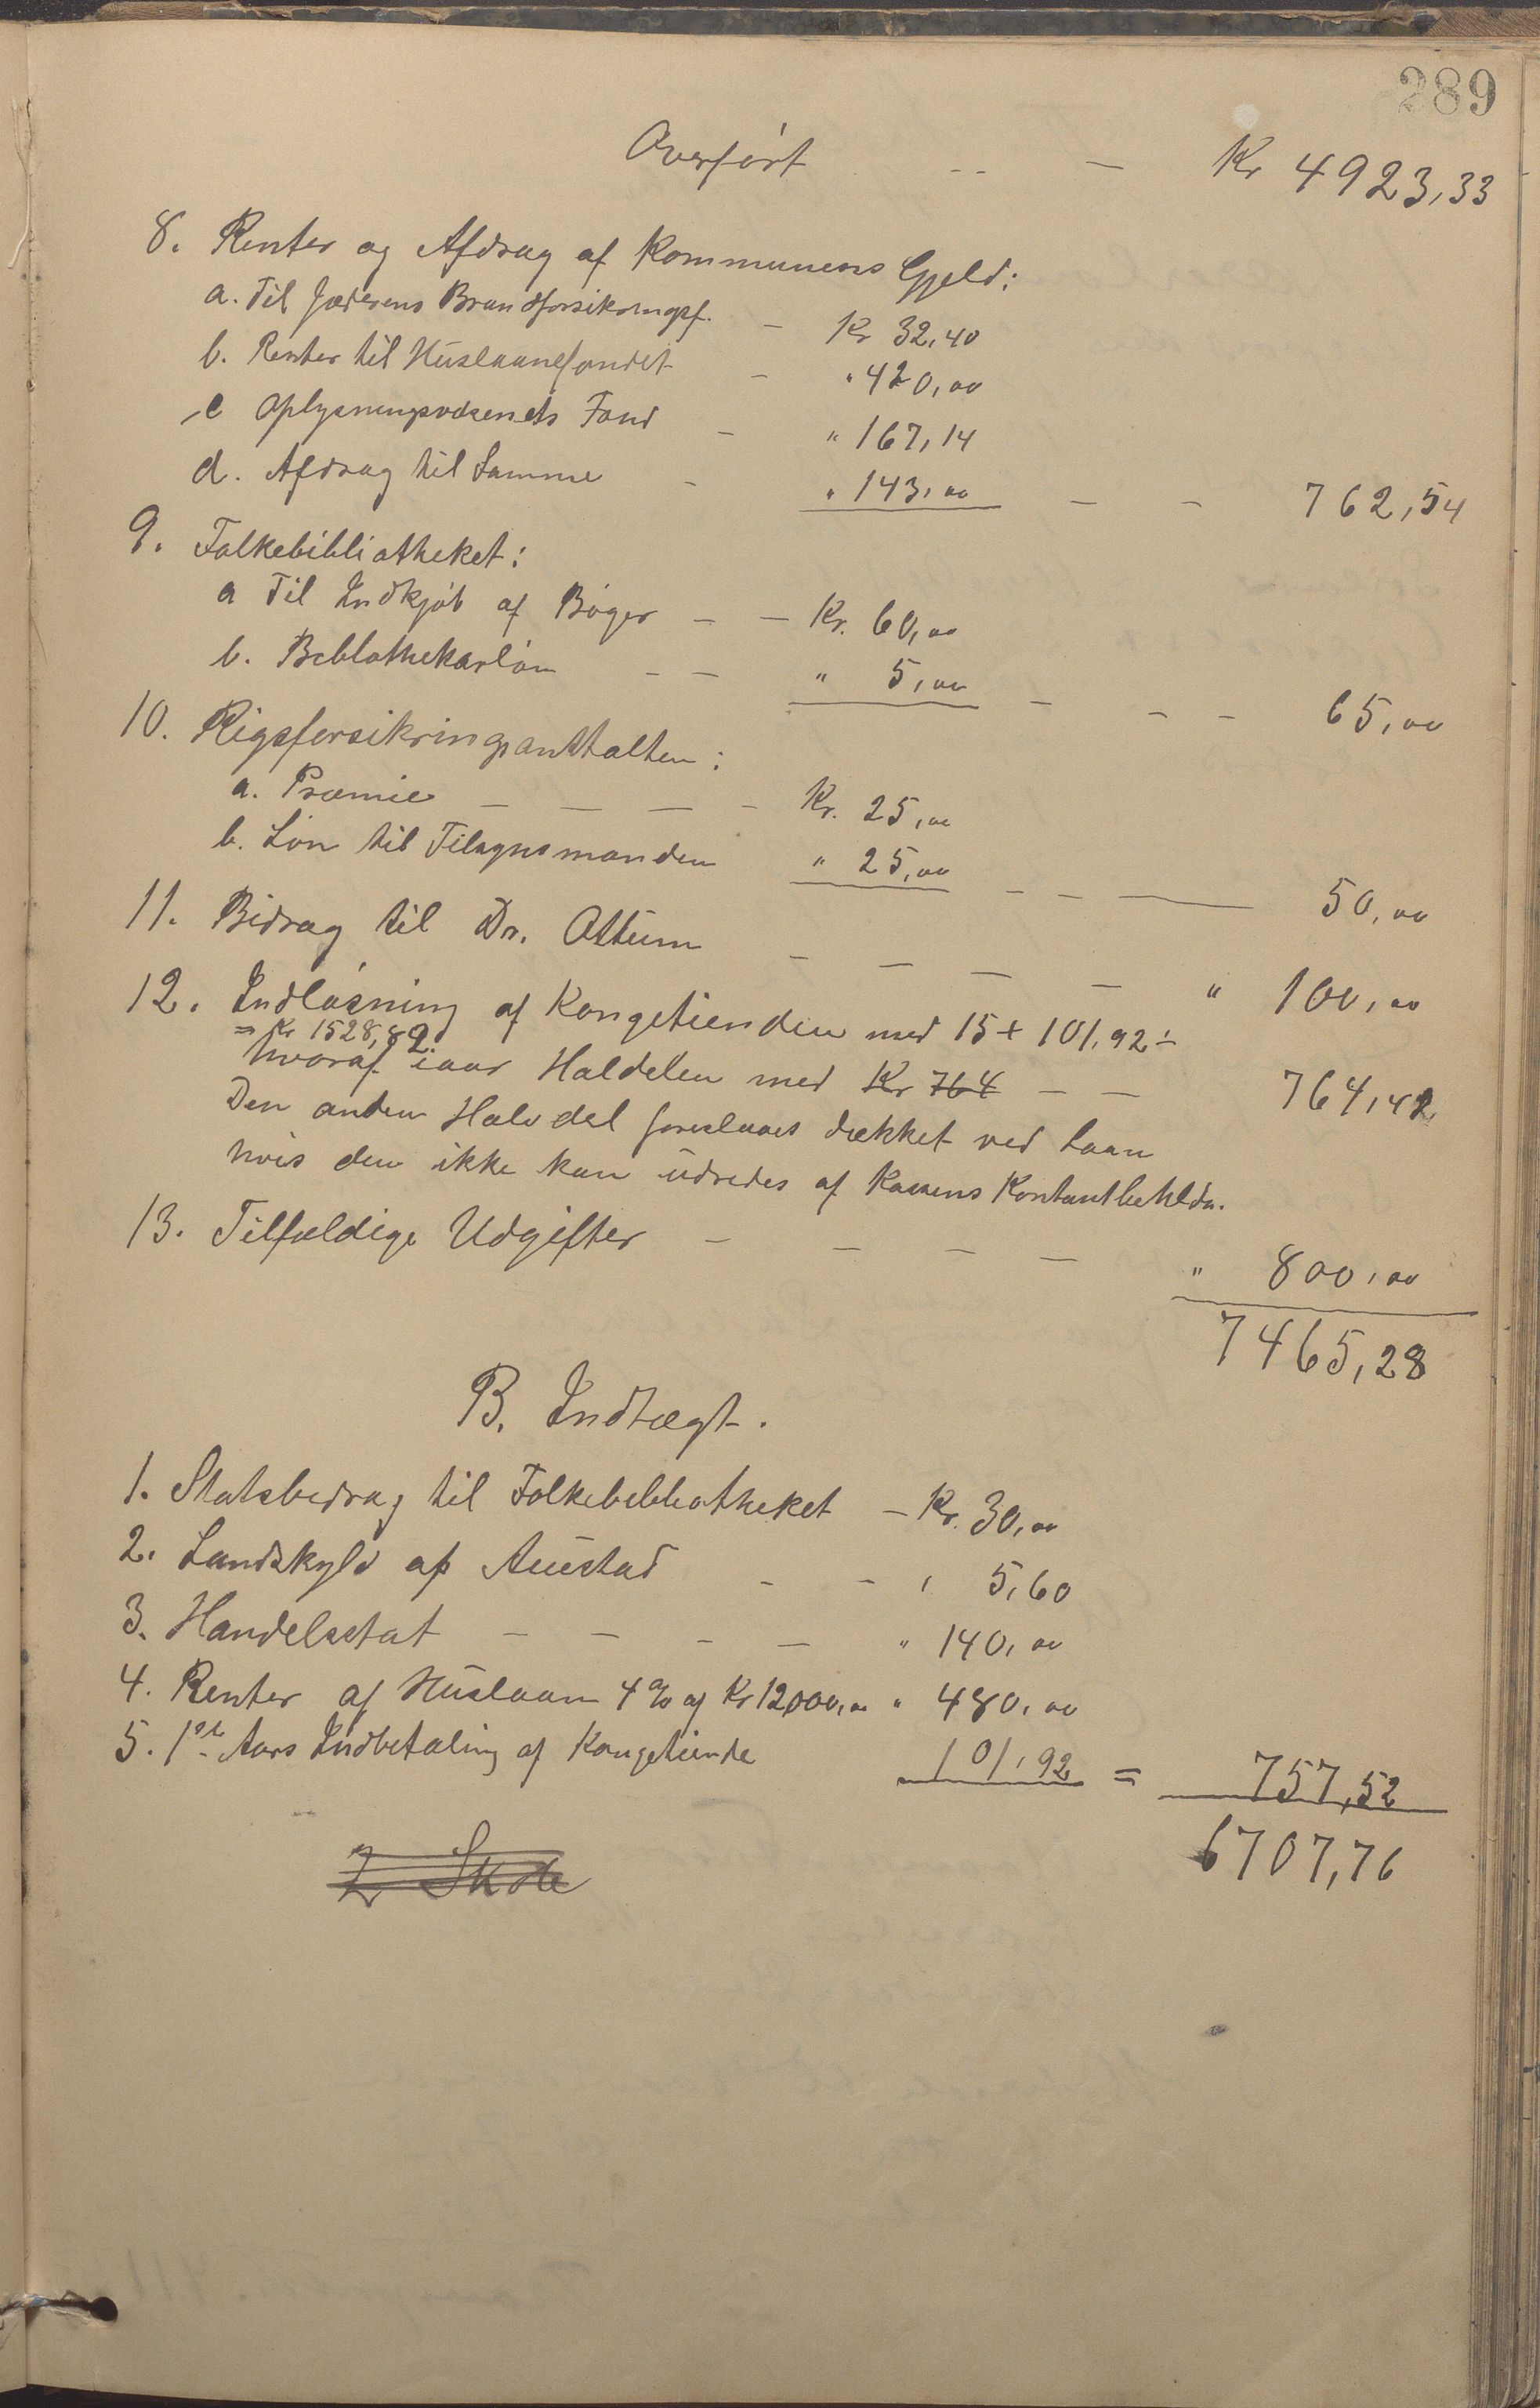 289
Overført - - — Kr 4923,33
8. Renter og Afdrag af Kommunens Gjeld:
a. Til Jæderens Brandforsikringsf. - Kr 32,40
b. Renter til Huslaanefondet - " 420,00
c Oplysningsvæsenets Fond - " 167,14
d. Afdrag til Samme - " 143,00 - - 762,54
9. Folkebibliotheket:
a Til Indkjøb af Bøger - - Kr. 60,00
b. Beblothekarløn - - " 5,00 - - - 65,00
10. Rigsforsikringsanstalten:
a. Præmie - - - - Kr. 25,00
b. Løn til Tilsynsmanden " 25,00 - - — 50,00
11. Bidrag til Dr. Attum - - - - " 100,00
12. Indløsning af Kongetienden med 15 + 101,92 ÷
= Kr 1528,82
hvoraf iaar Haldelen med Kr 764 - - 764,41
Den anden Halvdel foreslaaes dækket ved Laan
hvis den ikke kan udredes af Kassens Kontantbehldn.
13. Tilfældige Udgifter - - - - " 800,00
7465,28
B. Indtægt.
1. Statsbedrag til Folkebebliotheket - Kr. 30,00
2. Landskyld af Auestad - - " 5,60
3. Handelsstat - - - - " 140,00
4. Renter af Huslaan 4 % af Kr 12000,00 " 480,00
5. 1ste Aars Indbetaling af Kongetiende 101,92 = 757,52
6707,76
2 Skole